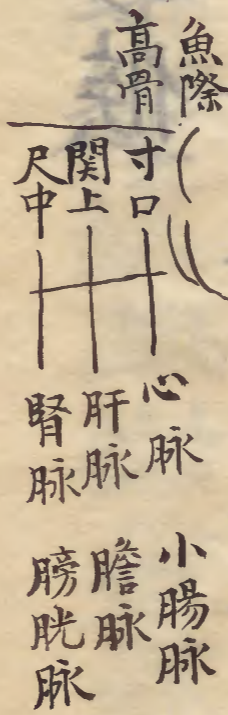 魚際
高骨
寸口
関上
尺中
心脉
肝脉
腎脉
小腸脉
膽脉
膀胱脉